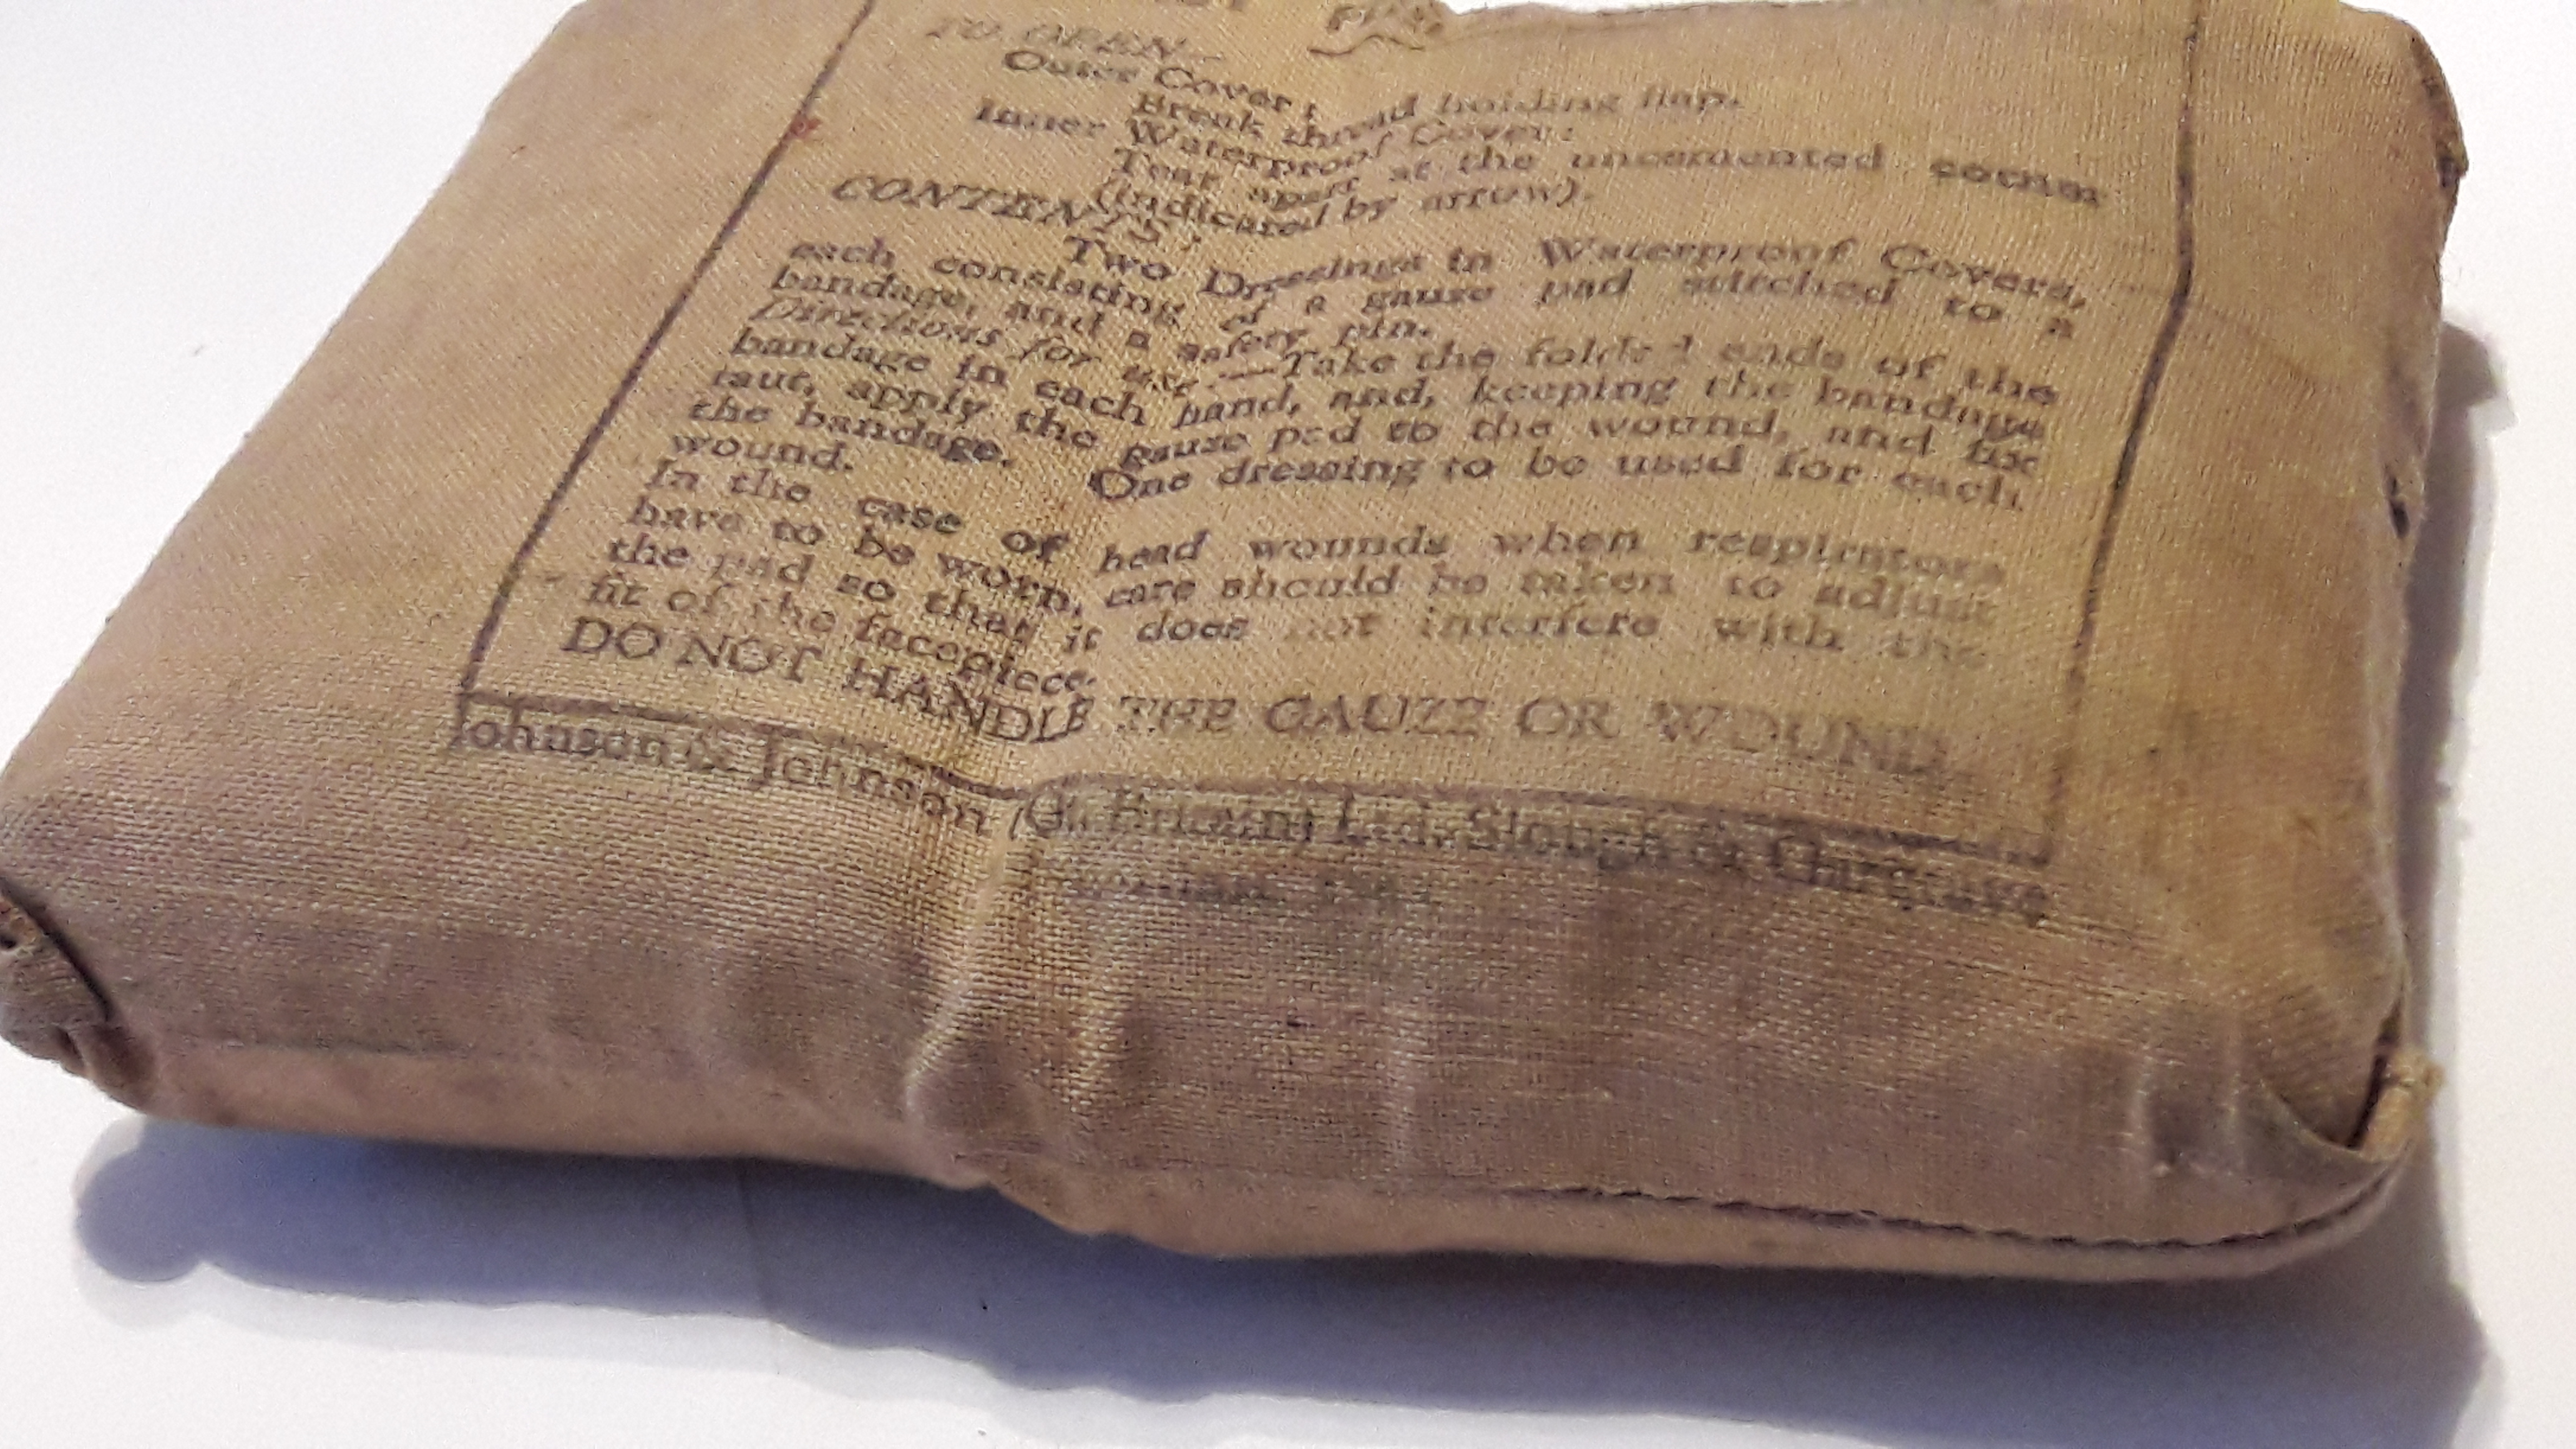 TO OPEN—
Outer Cover:
Break thread holding flap.
Inner Waterproof Cover:
Tear apart at the uncemented corner
(indicated by arrow).
CONTENTS:
Two Dressings in Waterproof Covers,
each consisting of a gauze pad stitched to a
bandage, and a safety pin.
Directions for use.—Take the folded ends of the
bandage in each hand, and, keeping the bandage
taut, apply the gauze pad to the wound, and fix
the bandage. One dressing to be used for each
wound.
In the case of head wounds when respirators
have to be worn, care should be taken to adjust
the pad so that it does not interfere with the
fit of the facepiece.
DO NOT HANDLE THE GAUZE OR WOUND.
Johnson & Johnson (Gt. Britain) Ltd. Slough & Gargrave